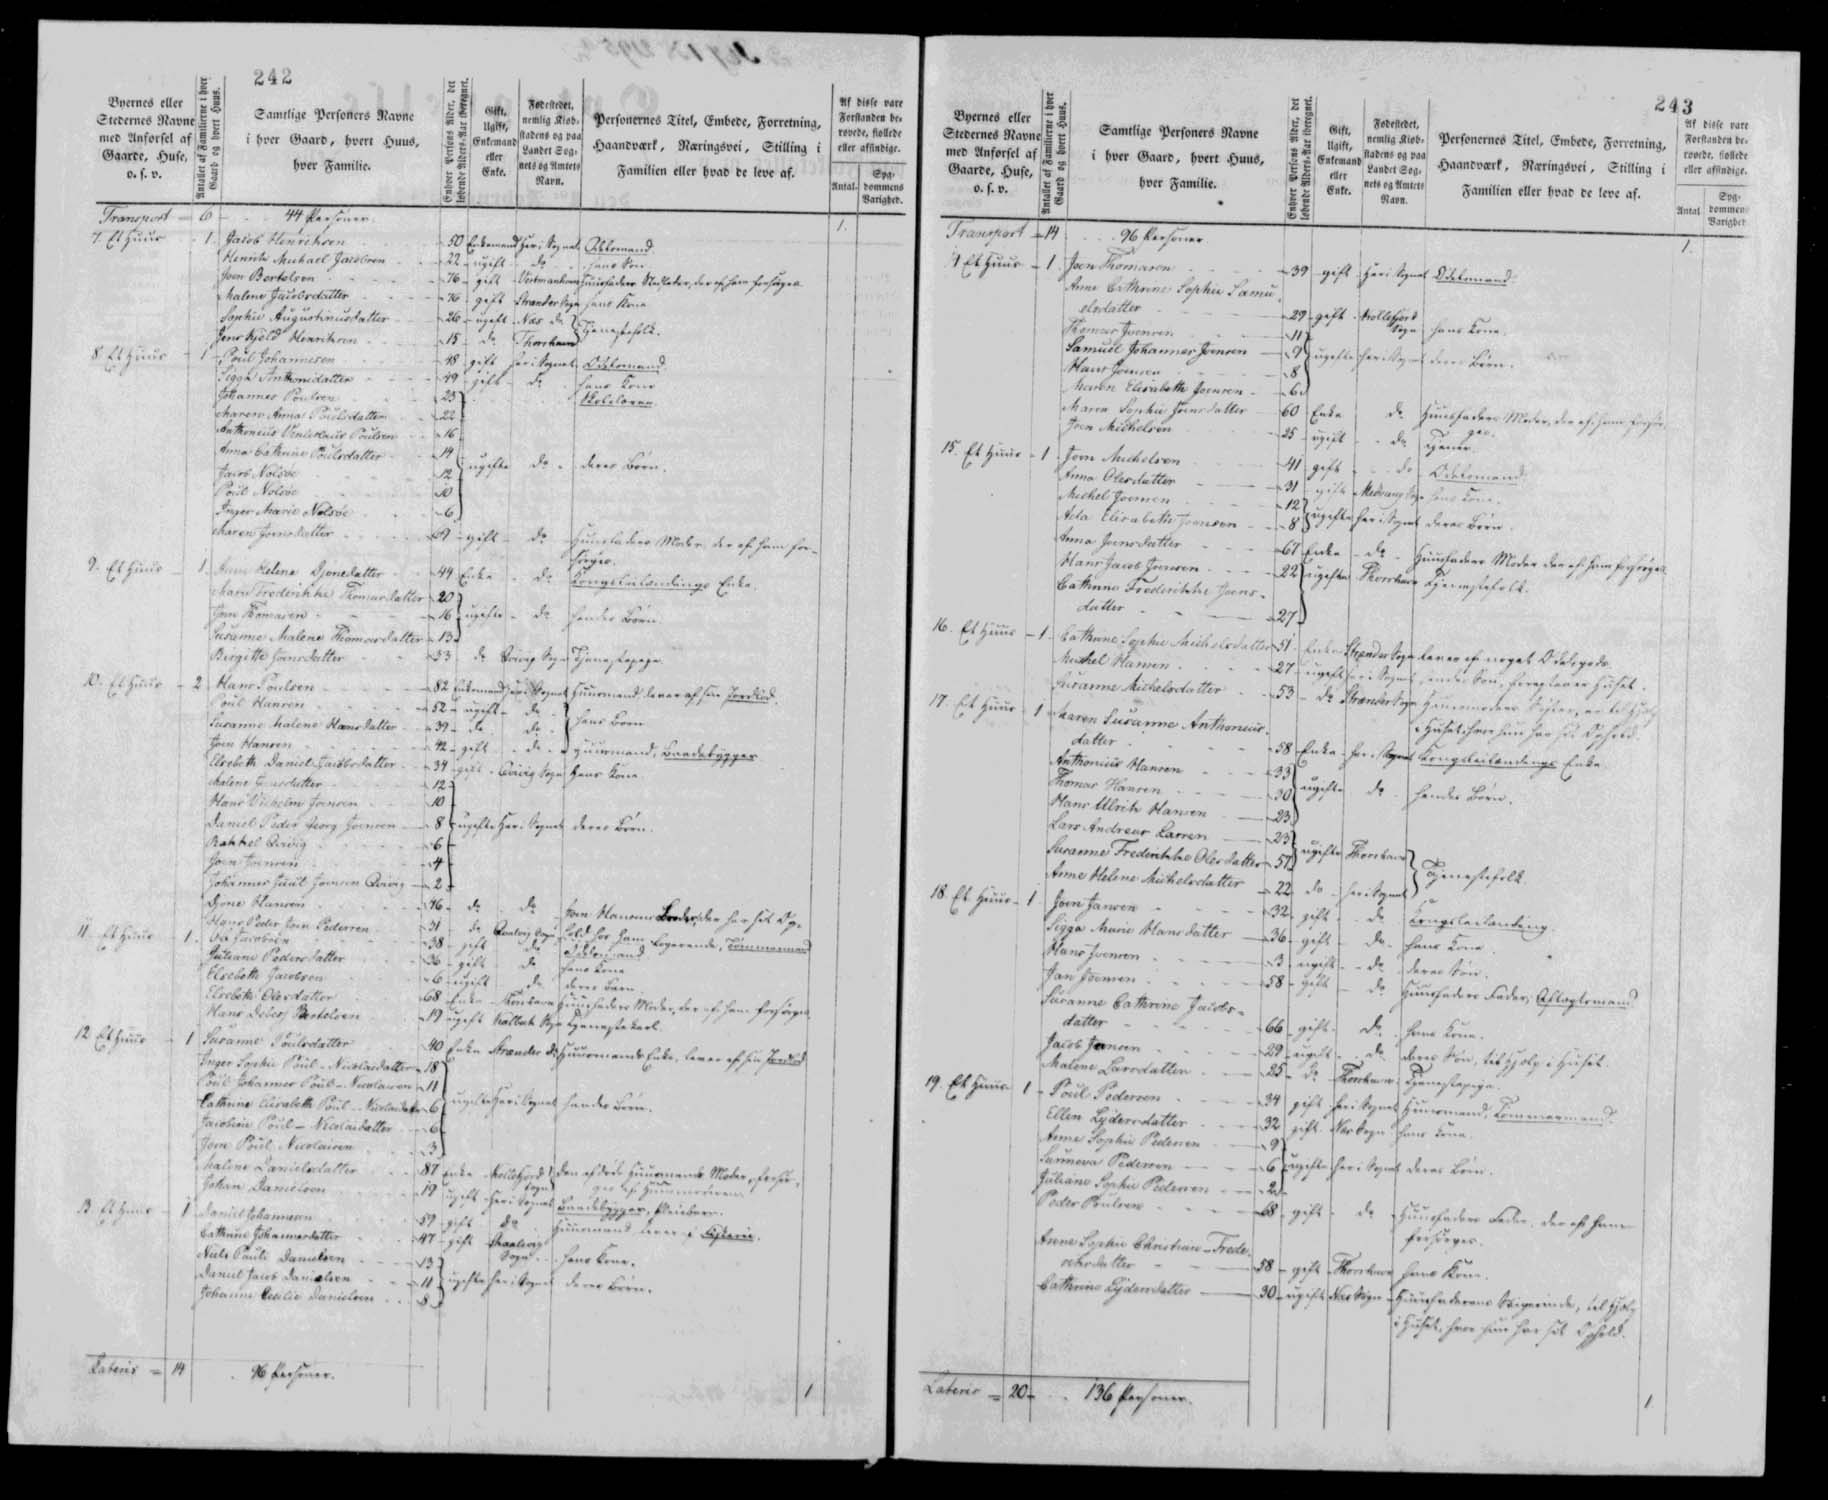 242
Byernes eller Stedernes Navne med Anførsel af Gaarde, Huse, o. s. v.
Antallet af Familierne i hver Gaard og hvert Huus.
Samtlige Personers Navne i hver Gaard, hvert Huus, hver Familie.
Enhver Persons Alder, det løbende Alders-Aar iberegnet.
Gift, Ugift, Enkemand eller Enke.
Fødestedet, nemlig Kiøbstadens og paa Landet Sognets og Amtets Navn.
Personernes Titel, Embede, Forretning, Haandværk, Næringsvei, Stilling i Familien eller hvad de leve af.
Af disse vare Forstanden berøvede, fiollede eller afsindige.
Antal.
Sygdommens Varighed.
Transport = 6 44 Personer. 1.
7. Et Huus 1. Jacob Henrichsen 50 Enkemand Her i Sognet Odelsmand
Henrich Michael Jacobsen 22 ugift do hans Søn
Joen Bertelsen 76 gift Vestmanhavn
Malene Jacobsdatter 76 gift Strander Sogn hans Kone
Sophie Augustinusdatter 26 ugift Næs do Tjenestefolk.
Jens Kjeld Henrichsen 15 do Thorshavn
8. Et Huus 1 Poul Johannesen 48 gift Her i Sognet Odelsmand
Sigga Anthonidatter 49 gift do hans Kone
Johannes Poulsen 23 Skolelærer
Maren Anna Poulsdatter 22
Anthonius Venceslaus Poulsen 16
Anna Cathrine Poulsdatter 14
Jacob Nolsøe 12 ugifte do deres Børn.
Poul Nolsøe 10
Inger Marie Nolsøe 6
Maren Joensdatter 69 gift do Huusfaders Moder, der af ham forsørges.
9. Et Huus 1 Anne Helene Djonedatter 44 Enke do Kongsleilændings Enke.
Maria Frederikke Thomasdatter 20
Joen Thomasen 16 ugifte do hendes Børn.
Susanne Malene Thomasdatter 13
Birgitte Joensdatter 33 do Qvivig Sogn Tjenestepige
10. Et Huus 2 Hans Poulsen 82 Enkemand Her i Sognet Huusmand, lever af sin Jordlod.
Poul Hansen 52 ugift do
Susanne Malene Hansdatter 39 do do hans Børn
Joen Hansen 42 gift do Huusmand, Baadebygger
Elsebeth Daniel-Jacobsdatter 34 gift Qvivig Sogn hans Kone.
Malene Joensdatter 12
Hans Vilhelm Joensen 10
Daniel Peder Georg Joensen 8 ugifte Her i Sognet deres Børn.
Rakkel Qvivig 6
Joen Joensen 4
Johannes Juul Joensen Qvivig 2
Djone Hansen 46 do do Joen Hansens Broder, der har sit Ophold hos ham
Hans Peder Joen Pedersen 31 do Qvalvig Sogn logerende, Tømmermand
11. Et Huus 1. Ole Jacobsen 38 gift do Odelsmand
Juliane Pedersdatter 36 gift do hans Kone
Elsebeth Jacobsen 6 ugift do deres Barn.
Elsebeth Olesdatter 68 Enke Thorshavn Huusfaders Moder, der af ham forsørges
Hans Debes Bertelsen 19 ugift Kalbach Sogn Tjenestekarl.
12 Et Huus 1 Susanne Poulsdatter 40 Enke Strander do Huusmands Enke, lever af sin Jordlod
Inger Sophie Poul-Nicolaidatter 18
Poul Johannes Poul-Nicolaisen 11
Cathrine Elisabeth Poul-Nicolaidatter 6 ugifte Her i Sognet hendes Børn.
Jacobine Poul-Nicolaidatter 6
Joen Poul Nicolaisen 3
Malene Danielsdatter 87 Enke Kollefjord Sogn
Johan Danielsen 19 ugift Her i Sognet Baadebygger, Pleiebarn.
13. Et Huus 1 Daniel Johannesen 59 gift do Huusmand lever af Fiskerie.
Cathrine Johannesdatter 47 gift Sogn hans Kone.
Niels Pauli Danielsen 13
Daniel Jacob Danielsen 11 ugifte Her i Sognet deres Børn.
Johanne Cecilie Danielsen 8
Lateris = 14 96 Personer. 1
243
Byernes eller Stedernes Navne med Anførsel af Gaarde, Huse, o. s. v.
Antallet af Familierne i hver Gaard og hvert Huus.
Samtlige Personers Navne i hver Gaard, hvert Huus, hver Familie.
Enhver Persons Alder, det løbende Alders-Aar iberegnet.
Gift, Ugift, Enkemand eller Enke.
Fødestedet, nemlig Kiøbstadens og paa Landet Sognets og Amtets Navn.
Personernes Titel, Embede, Forretning, Haandværk, Næringsvei, Stilling i Familien eller hvad de leve af.
Af disse vare Forstanden berøvede, fiollede eller afsindige.
Antal
Sygdommens Varighed
Transport = 14 96 Personer 1.
14 Et Huus 1. Joen Thomasen 39 gift Her i Sognet Odelsmand
Anne Cathrine Sophie Samuelsdatter 29 gift Kollefjord Sogn hans Kone.
Thomas Joensen 11
Samuel Johannes Joensen 9 ugifte Her i Sognet deres Børn.
Hans Joensen 8
Maren Elisabeth Joensen 6
Maren Sophie Joensdatter 60 Enke do Huusfaders Moder, der af ham forsørges.
Joen Michelsen 25 ugift do Tjener
15. Et Huus 1 Joen Michelsen 41 gift do Odelsmand
Anna Olesdatter 31 gift Midvaag Sogn hans Kone.
Michel Joensen 12 ugifte Her i Sognet deres Børn.
Ada Elisabeth Joensen 8
Anna Joensdatter 67 Enke do Huusfaders Moder der af ham forsørges
Hans Jacob Joensen 22 ugifte Thorshavn Tjenestefolk.
Cathrine Frederikke Joensdatter 27
16. Et Huus 1 Cathrine Sophie Michelsdatter 51 Enke Strander Sogn lever af noget Odelsgods.
Michel Hansen 27 ugift Her i Sognet
Susanne Michelsdatter 53 do Strander Sogn Huusmoders Søster, er til Hjelp i Huset, hvor hun har sit Ophold.
17. Et Huus 1 Maren Susanne Anthoniusdatter 58 Enke Her i Sognet Kongsleilændings Enke
Anthonius Hansen 33
Thomas Hansen 30 ugifte do hendes Børn.
Hans Ulrik Hansen 23
Lars Andreas Larsen 23
Susanne Frederikke Olesdatter 57 ugifte Thorshavn Tjenestefolk.
Anne Helene Michelsdatter 22 do Her i Sognet
18. Et Huus 1 Joen Jansen 32 gift do Kongsleilænding.
Sigga Marie Hansdatter 36 gift do hans Kone
Hans Joensen 3 ugift do deres Søn.
Jan Joensen 58 gift do Huusfaders Fader, Aftægtsmand
Susanne Cathrine Jacobsdatter 66 gift do hans Kone.
Jacob Jansen 29 ugift do deres Søn, til Hjelp i Huset.
Malene Larsdatter 25 do Thorshavn Tjenestepige.
19. Et Huus 1 Poul Pedersen 34 gift Her i Sognet Huusmand, Tømmermand
Ellen Lydersdatter 32 gift Næs Sogn hans Kone.
Anne Sophie Pedersen 9
Sunneva Pedersen 6 ugifte Her i Sognet deres Børn.
Juliane Sophie Pedersen 2
Peder Poulsen 68 gift do Huusfaders Fader, der af ham forsørges.
Anne Sophie Christiane Frederiksdatter 58 gift Thorshavn hans Kone.
Cathrine Lydersdatter 30 ugift Næs Sogn Huusfaderens Svigerinde, til Hjelp i Huset, hvor hun har sit Ophold.
Lateris = 20 136 Personer. 1